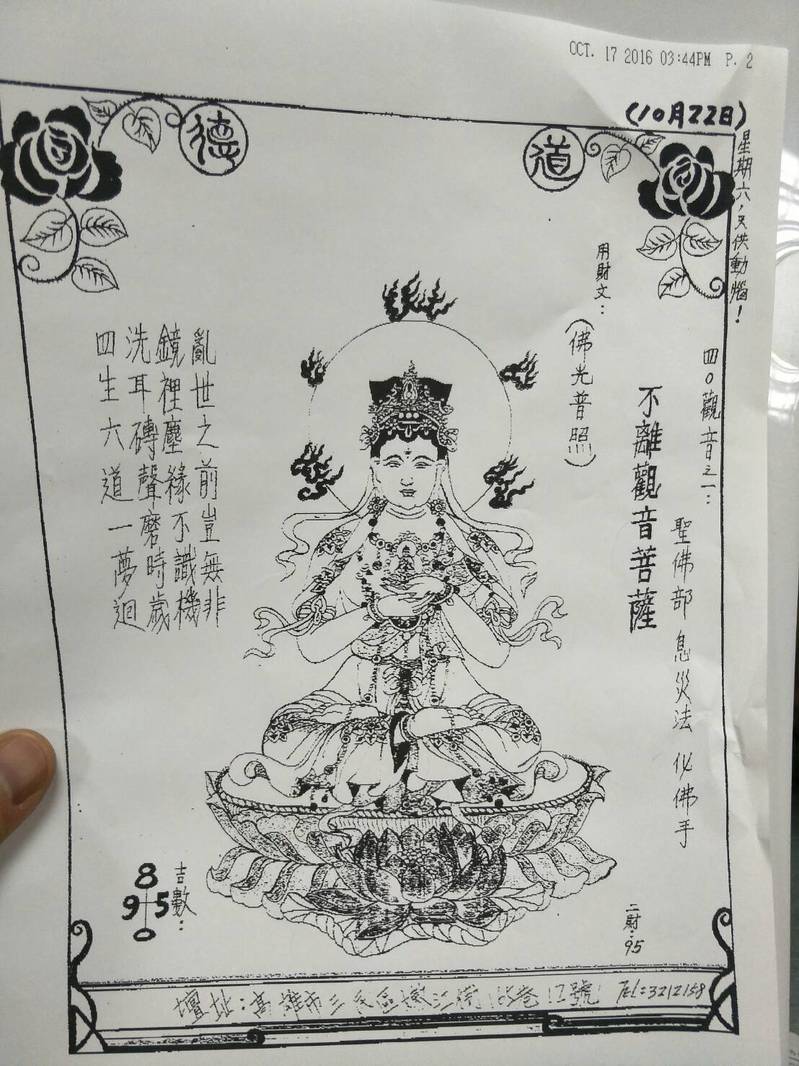 OCT. 17 2016 03:44PM P. 2
(10月22日)
星期六,只供動惱!
道
德
四0觀音之一:
聖佛部 息災法 化佛手
不離觀音菩薩
用財文:
(佛光普照)
亂世之前豈無非
鏡裡塵緣不識機
洗耳磚聲磨時歲
四生六道一夢迴
吉數:
8
9 5
0
二財:95
壇址:高雄市三民區 12號 TEL:3212158